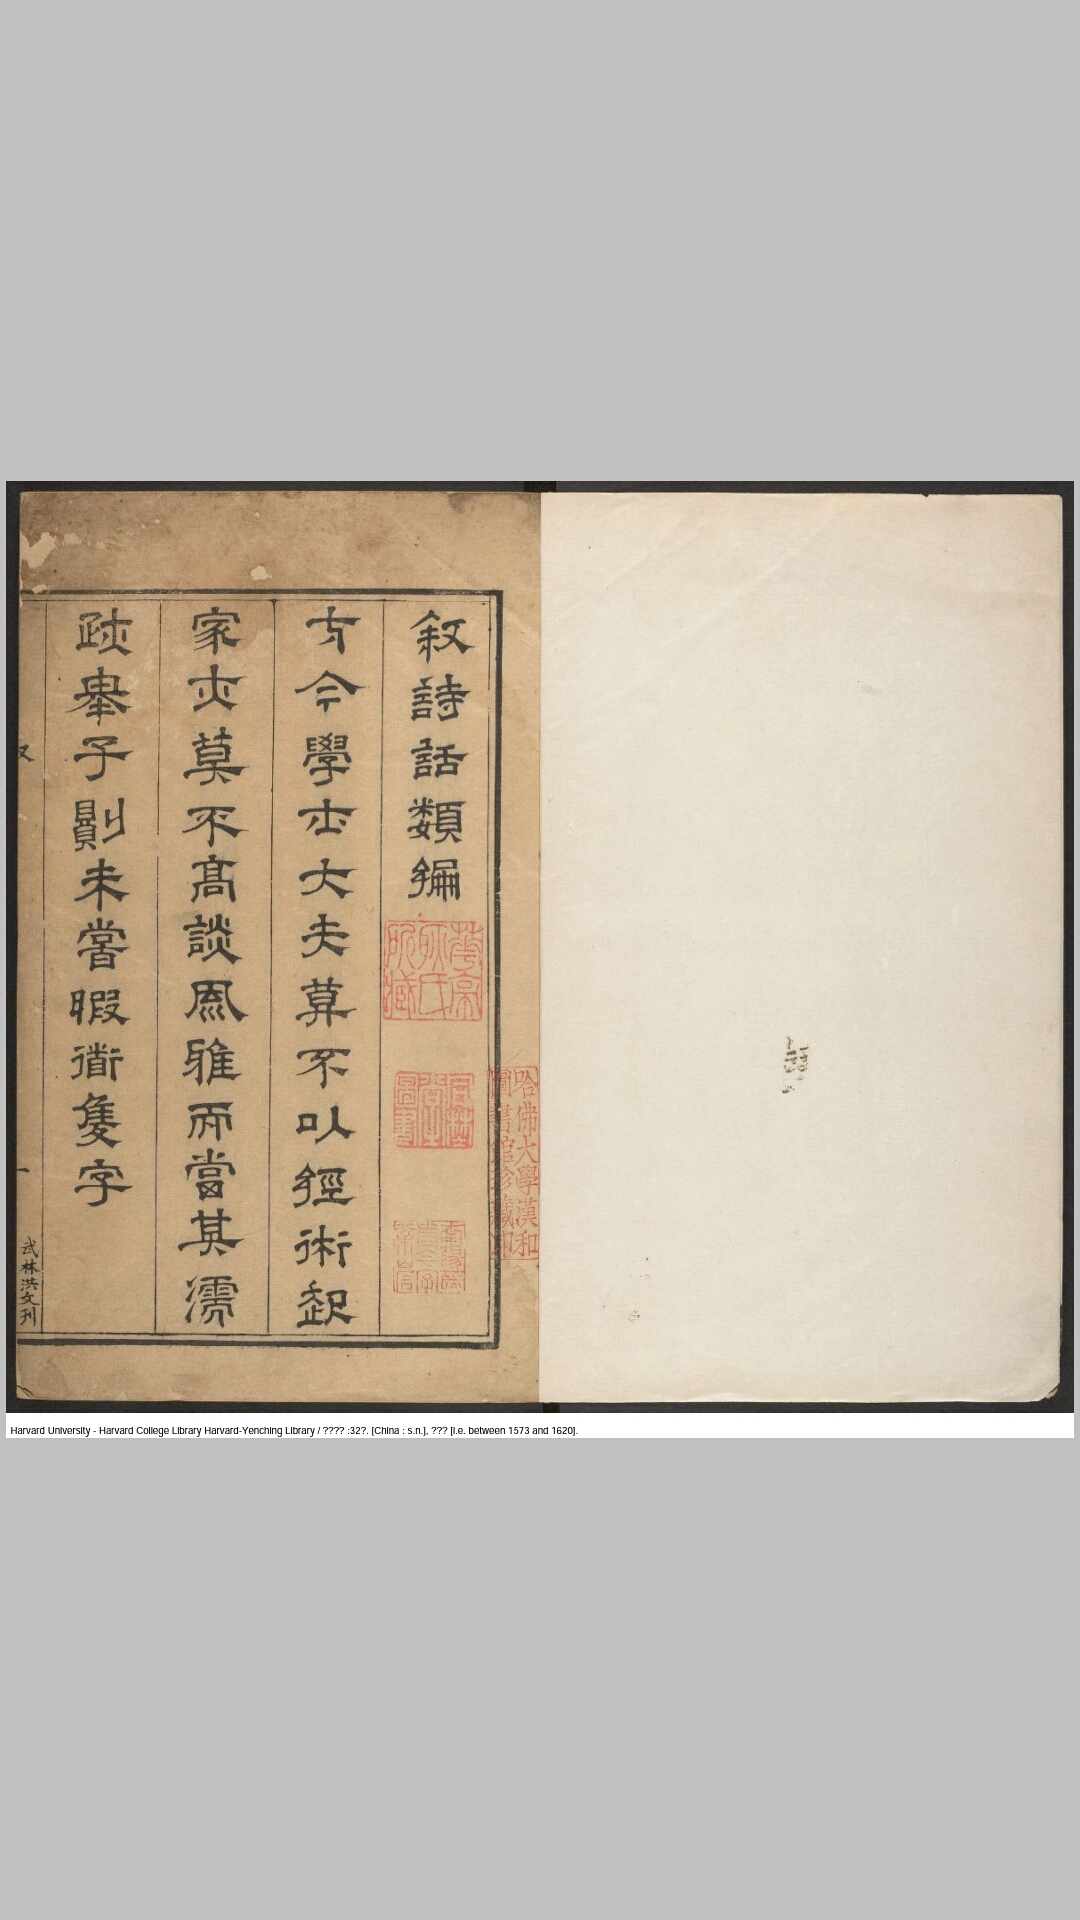 叙詩話類編
方今學士大夫莫不以經術起
家亦莫不高談風雅而當其濡
跡舉子則未嘗暇銜隻字
叙
一
武林洪文刊
華亭
氏
所藏
圖書
哈佛大學漢和
圖書館珍藏印
Harvard University - Harvard College Library Harvard-Yenching Library / ???? :32?. [China : s.n.], ??? [i.e. between 1573 and 1620].